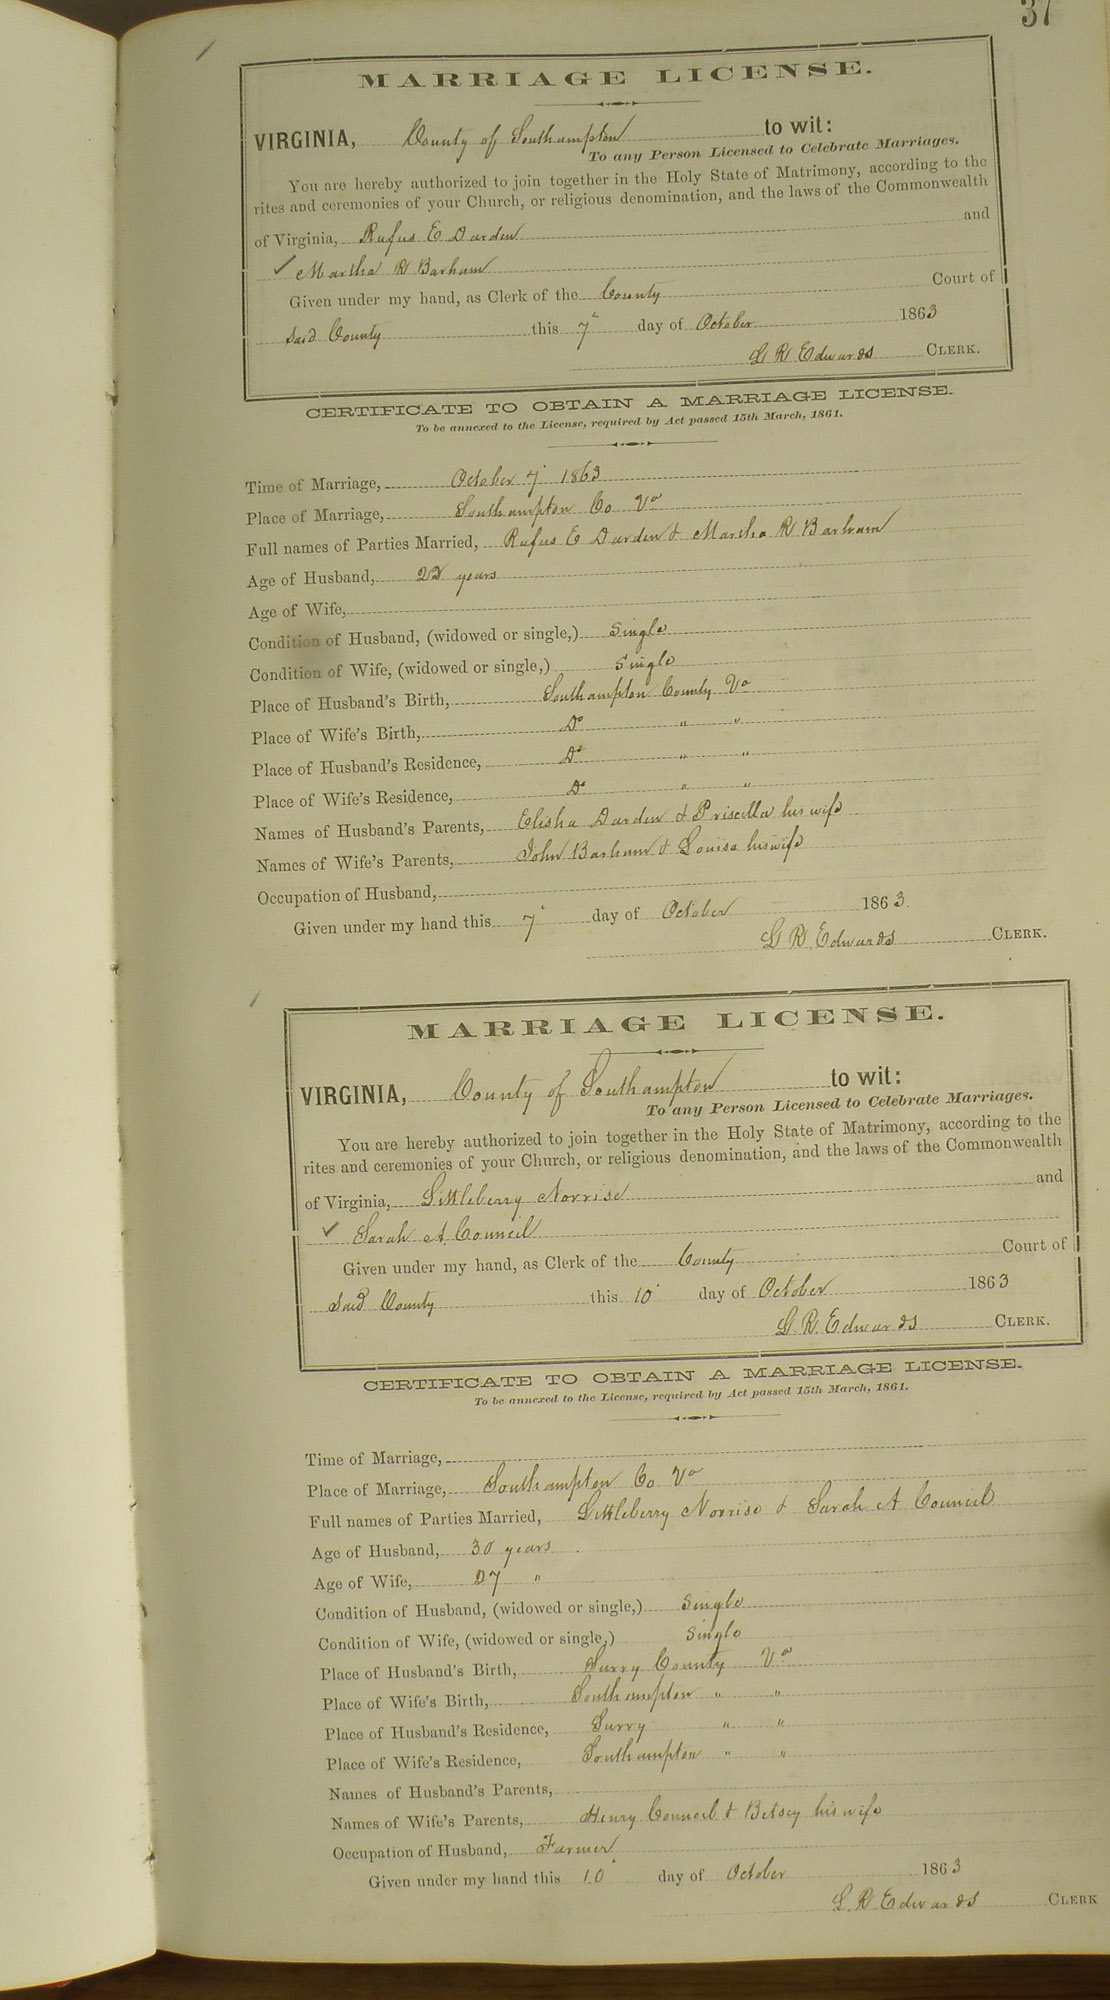 37
MARRIAGE LICENSE.
VIRGINIA, County of Southampton to wit:
To any Person Licensed to Celebrate Marriages.
You are hereby authorized to join together in the Holy State of Matrimony, according to the
rites and ceremonies of your Church, or religious denomination, and the laws of the Commonwealth
of Virginia, Rufus E Darden and
✓ Martha R Barham
Given under my hand, as Clerk of the County Court of
said County this 7" day of October 1863
L R Edwards CLERK.
CERTIFICATE TO OBTAIN A MARRIAGE LICENSE.
To be annexed to the License, required by Act passed 15th March, 1861.
Time of Marriage, October 7" 1863
Place of Marriage, Southampton Co Va
Full names of Parties Married, Rufus E Darden & Martha R Barham
Age of Husband, 22 years
Age of Wife,
Condition of Husband, (widowed or single,) Single
Condition of Wife, (widowed or single,) Single
Place of Husband's Birth, Southampton County Va
Place of Wife's Birth, Do " "
Place of Husband's Residence, Do " "
Place of Wife's Residence, Do " "
Names of Husband's Parents, Elisha Darden & Priscilla his wife
Names of Wife's Parents, John Barham & Louisa his wife
Occupation of Husband,
Given under my hand this 7" day of October 1863.
L R Edwards CLERK.
MARRIAGE LICENSE.
VIRGINIA, County of Southampton to wit:
To any Person Licensed to Celebrate Marriages.
You are hereby authorized to join together in the Holy State of Matrimony, according to the
rites and ceremonies of your Church, or religious denomination, and the laws of the Commonwealth
of Virginia, Littleberry Norrise and
✓ Sarah A. Council
Given under my hand, as Clerk of the County Court of
said County this 10" day of October 1863
L. R. Edwards CLERK.
CERTIFICATE TO OBTAIN A MARRIAGE LICENSE.
To be annexed to the License, required by Act passed 15th March, 1861.
Time of Marriage,
Place of Marriage, Southampton Co Va
Full names of Parties Married, Littleberry Norrise & Sarah A Council
Age of Husband, 30 years
Age of Wife, 27 "
Condition of Husband, (widowed or single,) Single
Condition of Wife, (widowed or single,) Single
Place of Husband's Birth, Surry County Va
Place of Wife's Birth, Southampton " "
Place of Husband's Residence, Surry " "
Place of Wife's Residence, Southampton " "
Names of Husband's Parents,
Names of Wife's Parents, Henry Council & Betsey his wife
Occupation of Husband, Farmer
Given under my hand this 10" day of October 1863
L. R. Edwards CLERK